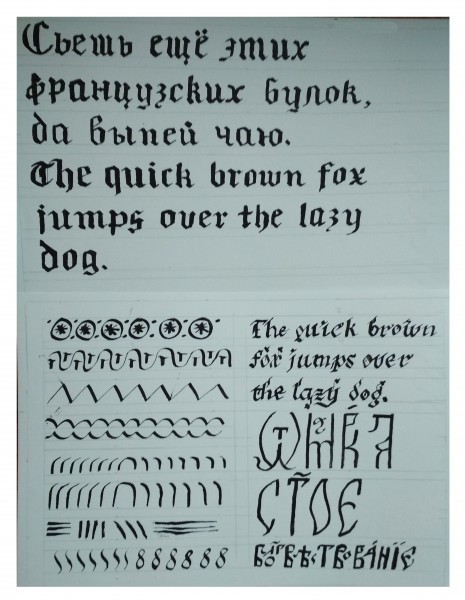 Сьешь ещё этих
французских булок,
да выпей чаю.
The quick brown fox
jumps over the lazy
dog.
The quick brown
fox jumps over
the lazy dog.
СТ҃ОЄ